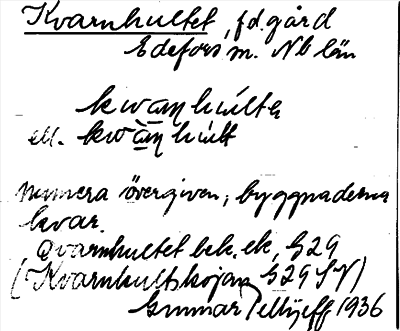 Kvarnhultet, f.d. gård
Edefors sn. Nb län
ell.
numera övergiven, byggnaderna
kvar.
Qvarnhultet bek. ek. G29
(Kvarnhultskojan G29 SV)
Gunnar Pellijeff 1936